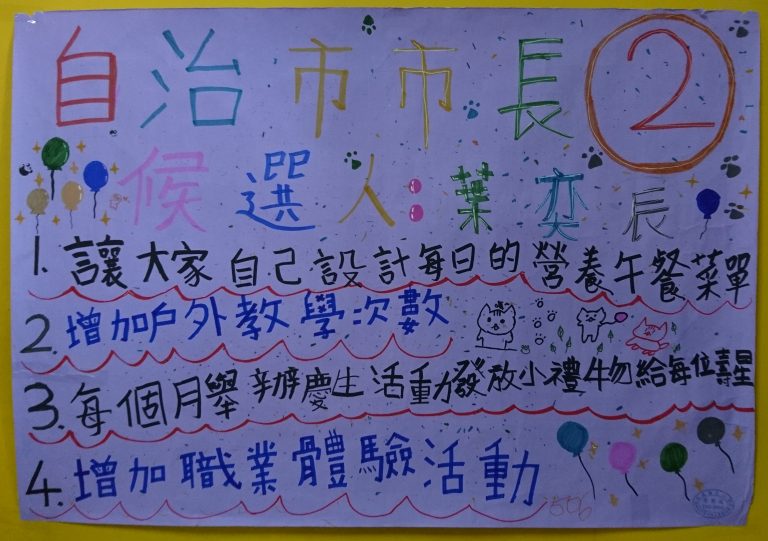 自治市市長 2
候選人:葉奕辰
1. 讓大家自己設計每日的營養午餐菜單
2. 增加戶外教學次數
3. 每個月舉辦慶生活動發放小禮物給每位壽星
4. 增加職業體驗活動
506